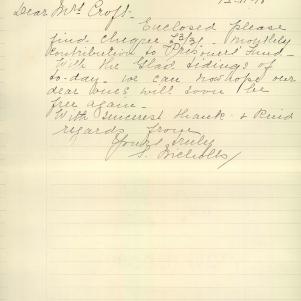 12-11-18
Dear Mrs Croft.
Enclosed please
find cheque £3/3/- Monthly
contribution to Prisoners Fund.
With the Glad tidings of
to-day. we can now hope our
dear ones will soon be
free again.
With sincerest thanks & kind
regards from
Yours truly
S. Nicholls